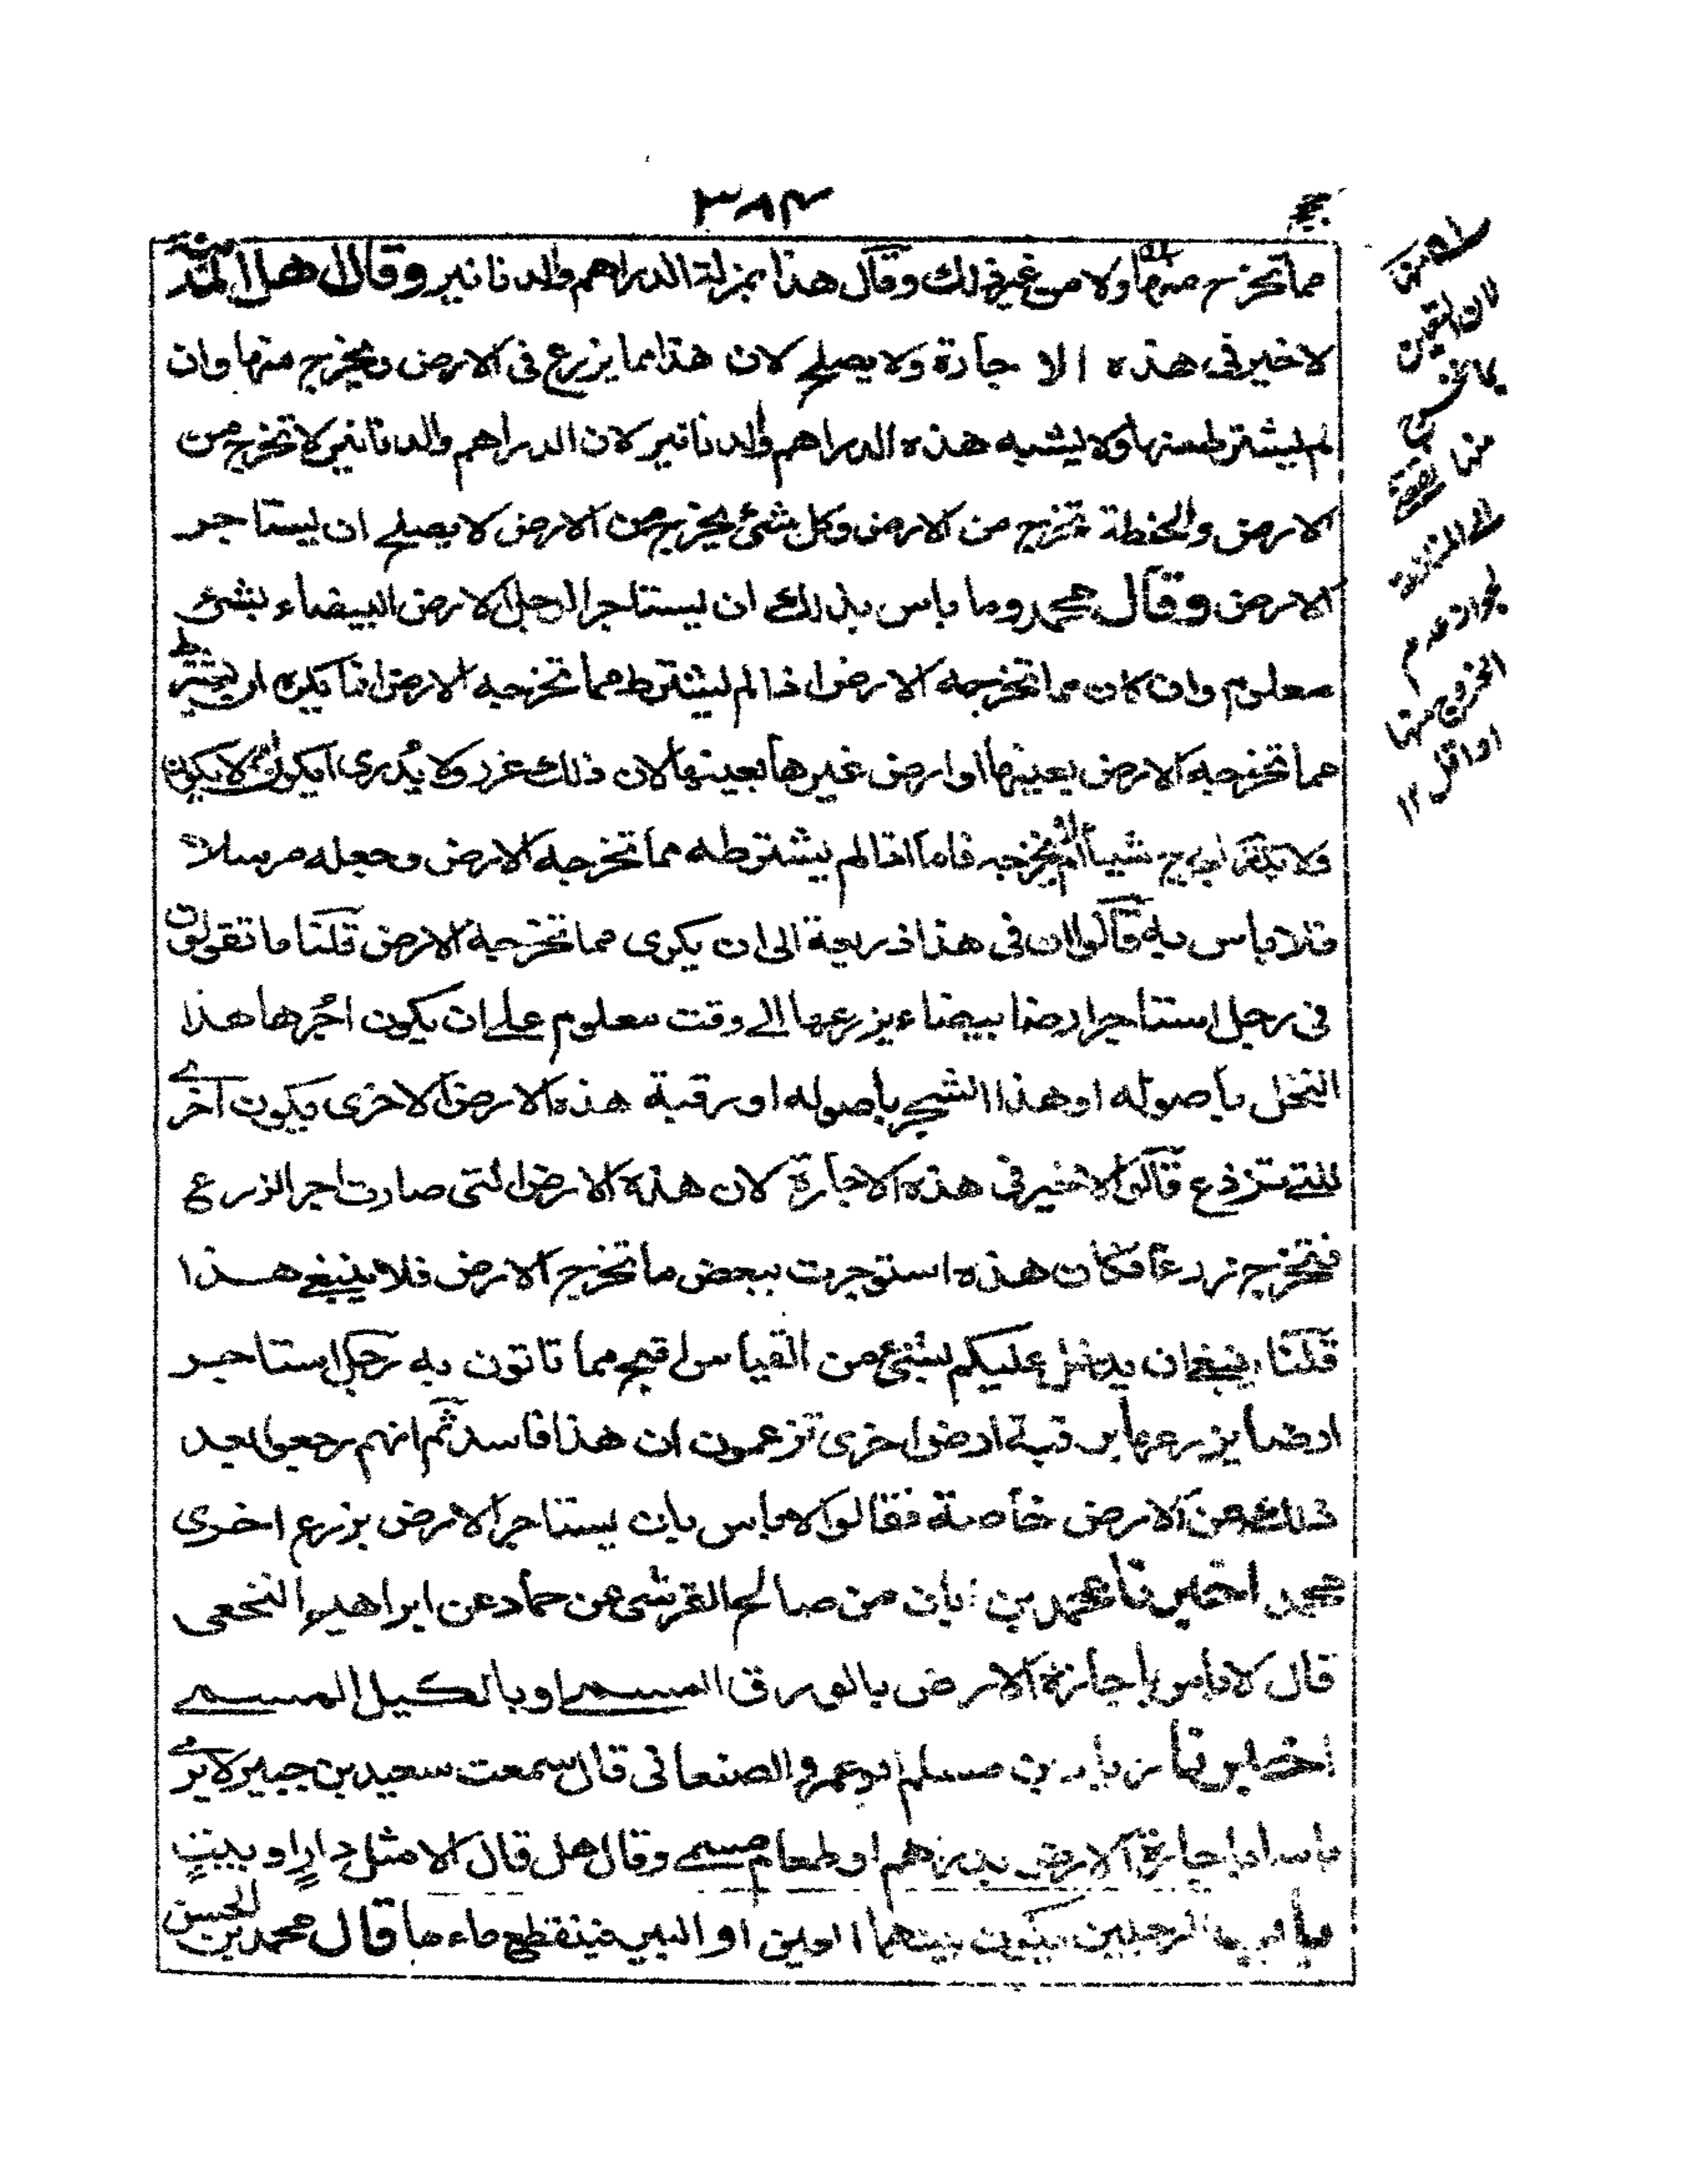 ٣٨٤
مما تخرج منها ولا من غير ذلك وقال هذا بمنزلة الدراهم والدنانير وقال اهل المدينة
لا خير فى هذه الاجارة ولا يصلح لان هذا مما يزرع فى الارض ويخرج منها وان
لم يشترط منها ولا يشبه هذه الدراهم والدنانير لان الدراهم والدنانير لا تخرج من
الارض والحنطة تخرج من الارض وكل شئ يخرج من الارض لا يصلح ان يستاجر
الارض وقال محمد وما باس بذلك ان يستاجر الرجل الارض البيضاء بشئ
معلوم وان كان مما تخرجه الارض اذا لم يشترط مما تخرجه الارض انما يكره ان يشترط
مما تخرجه الارض بعينها او ارض غيرها بعينها لان ذلك غرر ولا يدرى ايكون او لا يكون
ولا شيأ فاما اذا لم يشترطه مما تخرجه الارض وجعله مرسلا
فلا باس به قالوا ان فى هذا ذريعة الى ان يكرى مما تخرجه الارض قلنا ما تقولون
فى رجل استاجر ارضا بيضاء يزرعها الى وقت معلوم على ان يكون اجرها هذا
النخل باصوله او هذا الشجر باصوله او رقبة هذه الارض الاخرى يكون آخرے
للتے تزرع قالوا لا خير فى هذه الاجارة لان هذه الارض التى صارت اجرا لزرع
فتخرج زرعا فكان هذه استوجرت ببعض ما تخرج الارض فلا ينبغے هذا
قلنا ينبغے ان يدخل عليكم بشئ من القياس اقبح مما تاتون به رجل استاجر
ارضا يزرعها برقبة ارض اخرى تزعمون ان هذا فاسد ثم انهم رجعوا بعد
ذلك عن الارض خاصة فقالوا لا باس بان يستاجر الارض بزرع اخرى
محمد اخبرنا محمد بن ابان من صالح القرشى عن حماد عن ابراهيم النخعى
قال لا باس باجازة الارض بالورق المسمے او بالكيل المسمے
اخبرنا رباح بن مسلم ابو عمرو الصنعانى قال سمعت سعيد بن جبير لا يرے
باسا باجازة الارض بدراهم او طعام مسمے وقال هل قال الا مثل دارٍ او بيتٍ
باب الرجلين يكون بينهما العين او البير فينقطع ماءها قال محمد بن الحسن
لان التعين
منها
لجواز عدم
الخروج منها
او اقل ١٢